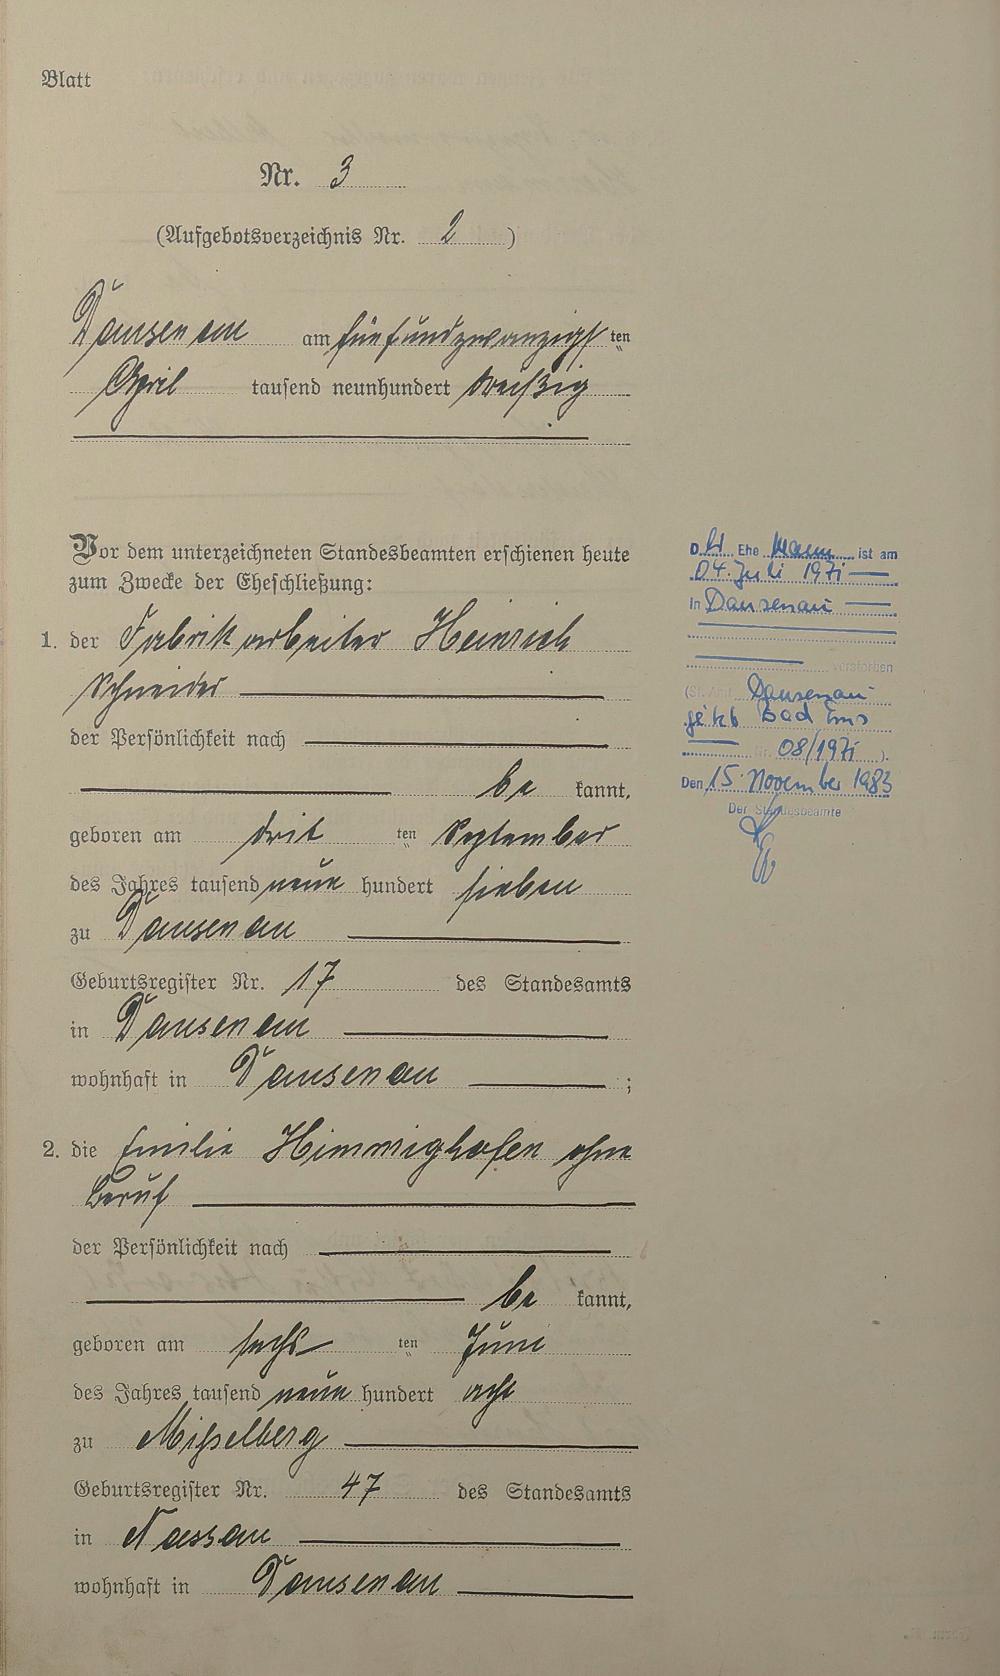 Blatt
Nr. 3
(Aufgebotsverzeichnis Nr. 2)
Dausenau am fünfundzwanzigsten
April tausend neunhundert dreißig
Vor dem unterzeichneten Standesbeamten erschienen heute
zum Zwecke der Eheschließung:
1. der Fabrikarbeiter Heinrich
Schneider
der Persönlichkeit nach
bekannt,
geboren am dritten September
des Jahres tausend neun hundert sieben
zu Dausenau
Geburtsregister Nr. 17 des Standesamts
in Dausenau
wohnhaft in Dausenau ;
2. die Emilie Himmighofen ohne
Beruf
der Persönlichkeit nach
bekannt,
geboren am sechsten Juni
des Jahres tausend neun hundert acht
zu Misselberg
Geburtsregister Nr. 47 des Standesamts
in Nassau
wohnhaft in Dausenau
Der Ehemann ist am
04. Juli 1971
in Dausenau
verstorben
(St. Amt Dausenau
jetzt Bad Ems
Nr. 08/1971 ).
Den 15. November 1983
Der Standesbeamte